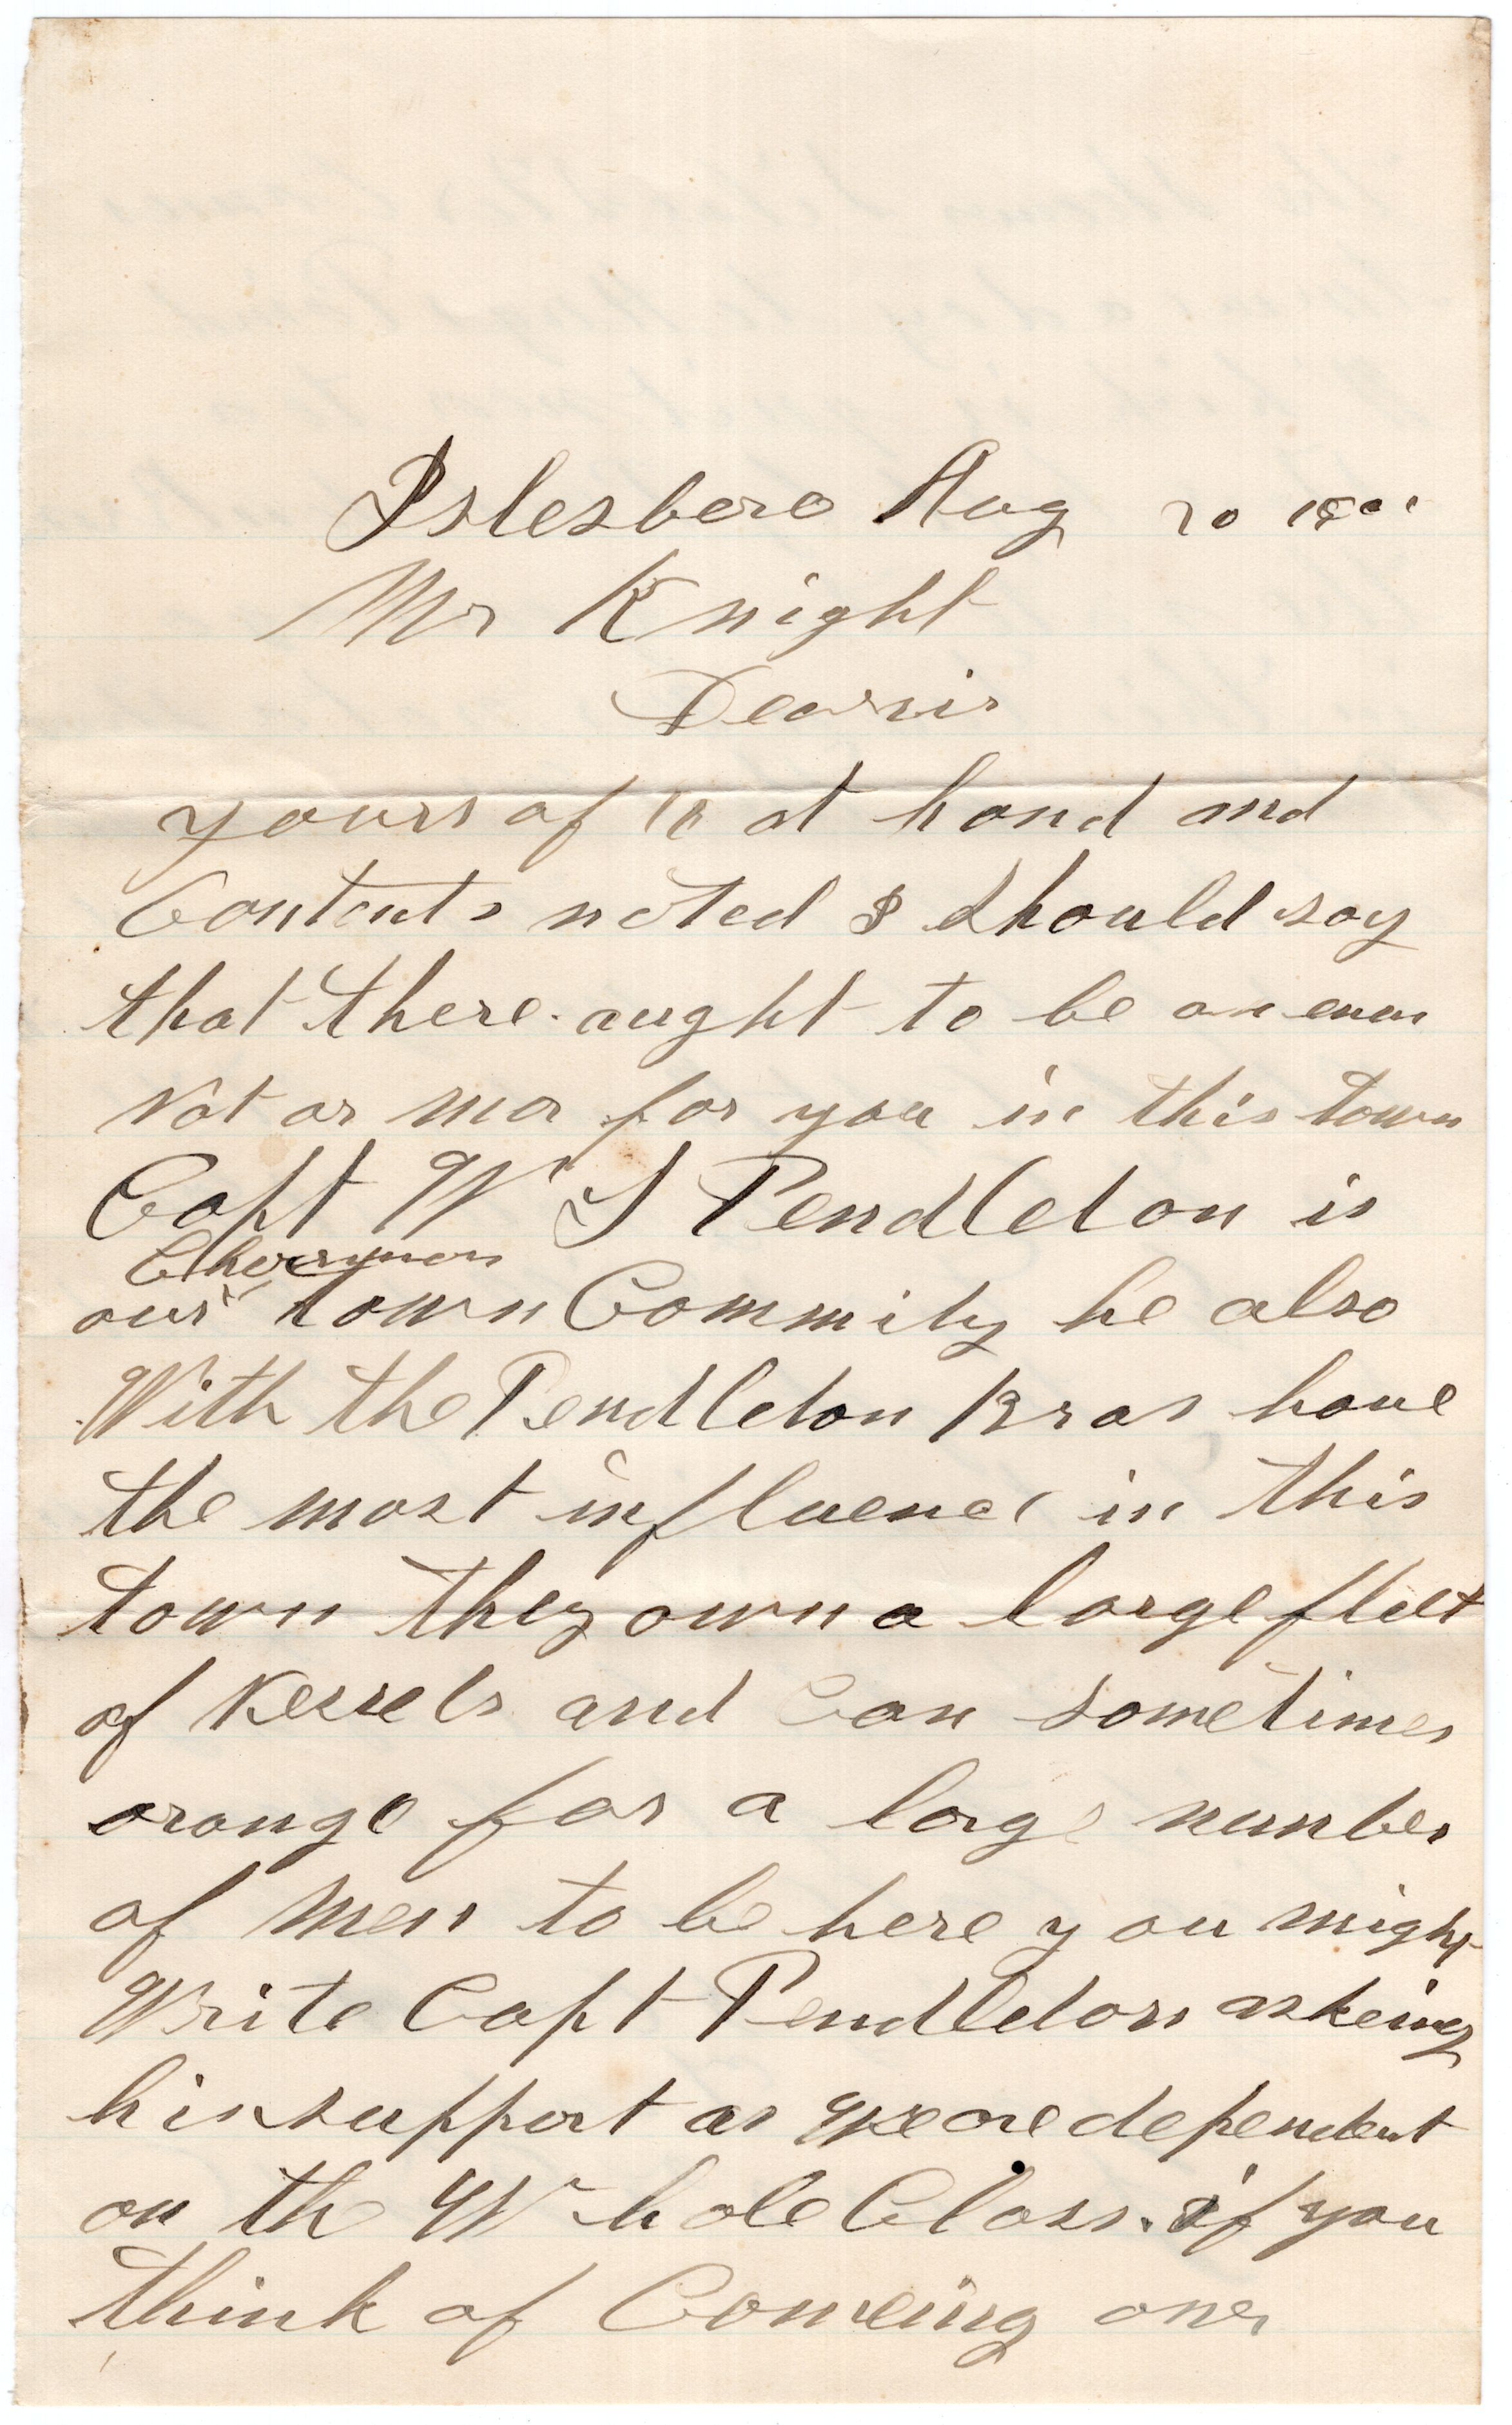 Islesboro Aug 20
Mr Knight
Dear sir
yours of at hand and
Contents noted I should say
that there aught to be an even
Vot or mor for you in this town
Capt W S Pendleton is
Cherrman
our town Commity he also
With the Pendleton Bros have
the most influence in this
town they own a large fleet
of Vessels and Can sometimes
arange for a large number
of men to be here you might
Write Capt Pendleton askeing
his support as We are dependent
on the Whole Class. if you
think of Comeing over